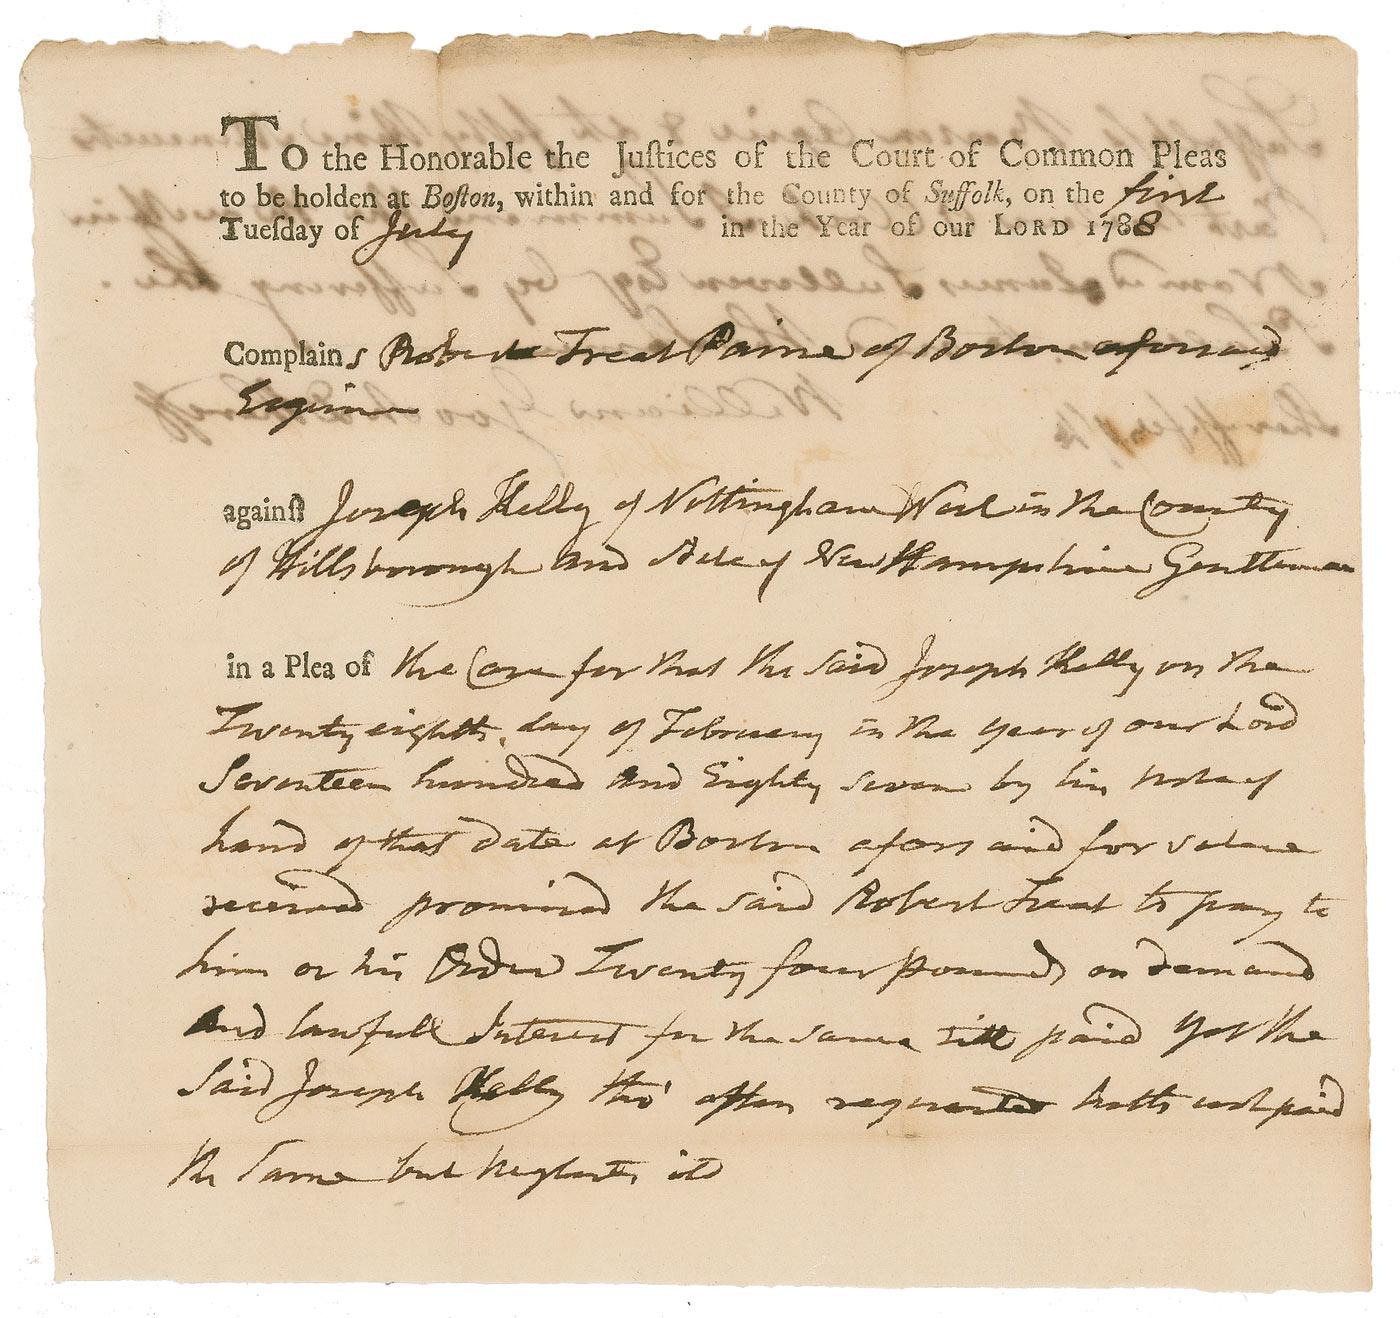 To the Honorable the Juſtices of the Court of Common Pleas
to be holden at Boſton, within and for the County of Suffolk, on the first
Tueſday of July in the Year of our LORD 1788
Complains Robert Treat Paine of Boston aforesaid
Esquire
againſt Joseph Kelly of Nottingham West in the County
of Hillsborough and State of New Hampshire Gentleman
in a Plea of the Case for that the said Joseph Kelly on the
Twenty eighth day of February in the year of our Lord
Seventeen hundred and Eighty seven by his note of
hand of that date at Boston aforesaid for value
received promised the said Robert Treat to pay to
him or his Order Twenty four pounds on demand
and lawfull Interest for the same till paid Yet the
Said Joseph Kelly tho' often requested hath not paid
the Same but neglects it